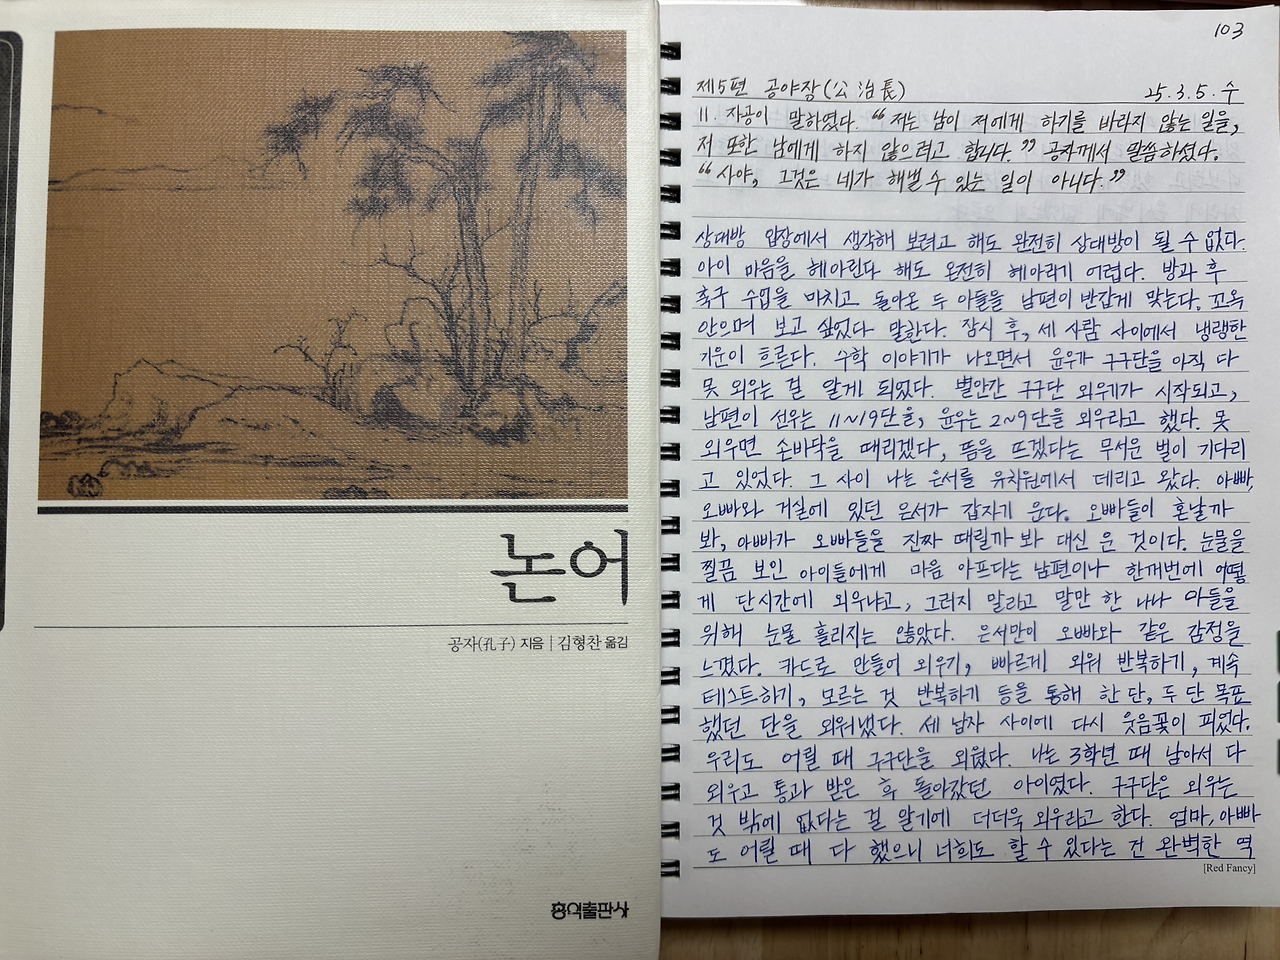 논어
공자(孔子) 지음 | 김형찬 옮김
홍익출판사
103
제5편 공야장(公冶長) 25.3.5.수
11. 자공이 말하였다. "저는 남이 저에게 하기를 바라지 않는 일을,
저 또한 남에게 하지 않으려고 합니다." 공자께서 말씀하셨다.
"사야, 그것은 네가 해낼 수 있는 일이 아니다."
상대방 입장에서 생각해 보려고 해도 완전히 상대방이 될 수 없다.
아이 마음을 헤아린다 해도 온전히 헤아리기 어렵다. 방과 후
축구 수업을 마치고 돌아온 두 아들을 남편이 반갑게 맞는다. 꼬옥
안으며 보고 싶었다 말한다. 잠시 후, 세 사람 사이에서 냉랭한
기운이 흐른다. 수학 이야기가 나오면서 윤우가 구구단을 아직 다
못 외우는 걸 알게 되었다. 별안간 구구단 외우기가 시작되고,
남편이 선우는 11~19단을, 윤우는 2~9단을 외우라고 했다. 못
외우면 손바닥을 때리겠다, 뜸을 뜨겠다는 무서운 벌이 기다리
고 있었다. 그 사이 나는 은서를 유치원에서 데리고 왔다. 아빠,
오빠와 거실에 있던 은서가 갑자기 운다. 오빠들이 혼날까
봐, 아빠가 오빠들을 진짜 때릴까 봐 대신 운 것이다. 눈물을
찔끔 보인 아이들에게 마음 아프다는 남편이나 한꺼번에 어떻
게 단시간에 외우냐고, 그러지 말라고 말만 한 나나 아들을
위해 눈물 흘리지는 않았다. 은서만이 오빠와 같은 감정을
느꼈다. 카드로 만들어 외우기, 빠르게 외워 반복하기, 계속
테스트하기, 모르는 것 반복하기 등을 통해 한 단, 두 단 목표
했던 단을 외워냈다. 세 남자 사이에 다시 웃음꽃이 피었다.
우리도 어릴 때 구구단을 외웠다. 나는 3학년 때 남아서 다
외우고 통과 받은 후 돌아갔던 아이였다. 구구단은 외우는
것 밖에 없다는 걸 알기에 더더욱 외우라고 한다. 엄마, 아빠
도 어릴 때 다 했으니 너희도 할 수 있다는 건 완벽한 역
[Red Fancy]